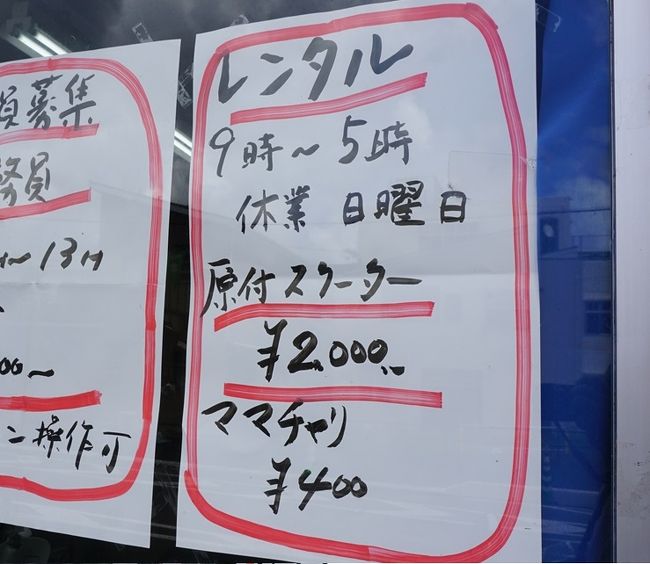 員募集
務員
～13H
00～
ン操作可
レンタル
9時～5時
休業 日曜日
原付スクーター
¥2,000.-
ママチャリ
¥400